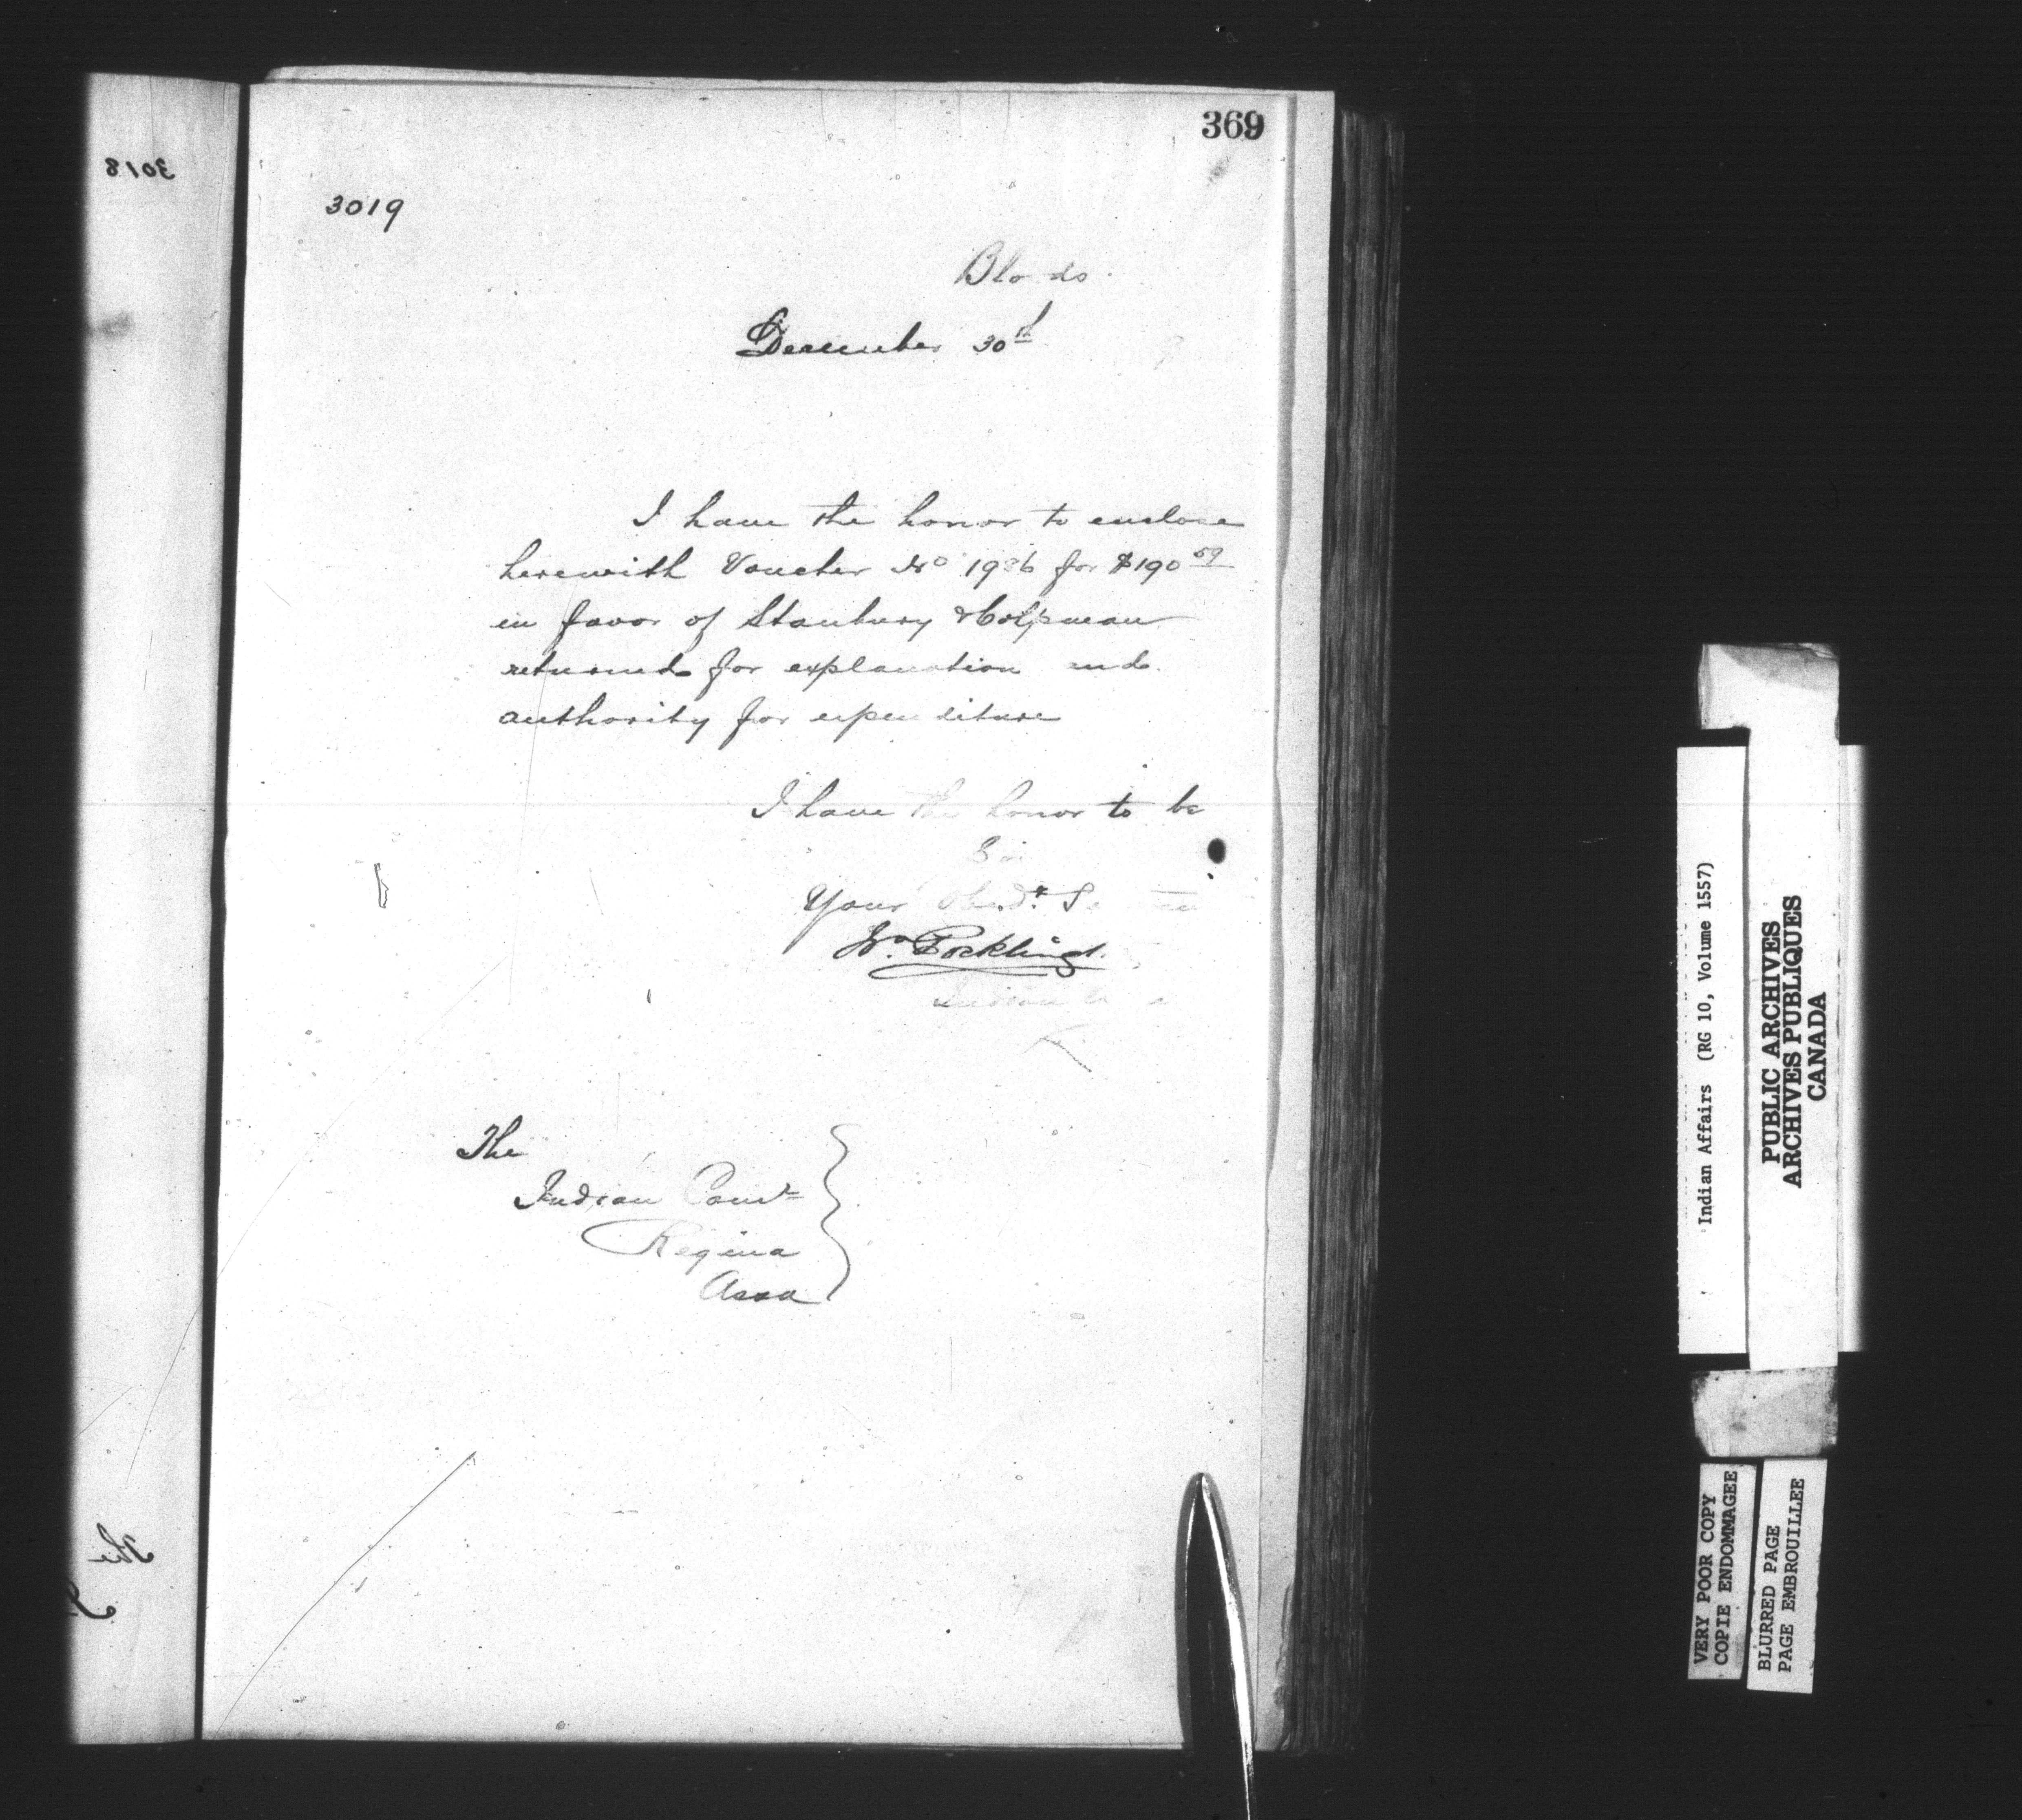 369
3018
3019
Bloods
December 30th
I have the honor to enclose
herewith Voucher No 1986 for $190 59
in favor of Stanbury &
returned for explanation and
authority for expenditure
I have the honor to be
Sir
Your Obedt. Servant
Wm. Pocklingt.
Indian
The
Indian Comr
Regina
Assa
The
Indian Affairs (RG 10, Volume 1557)
PUBLIC ARCHIVES
ARCHIVES PUBLIQUES
CANADA
VERY POOR COPY
COPIE ENDOMMAGEE
BLURRED PAGE
PAGE EMBROUILLEE